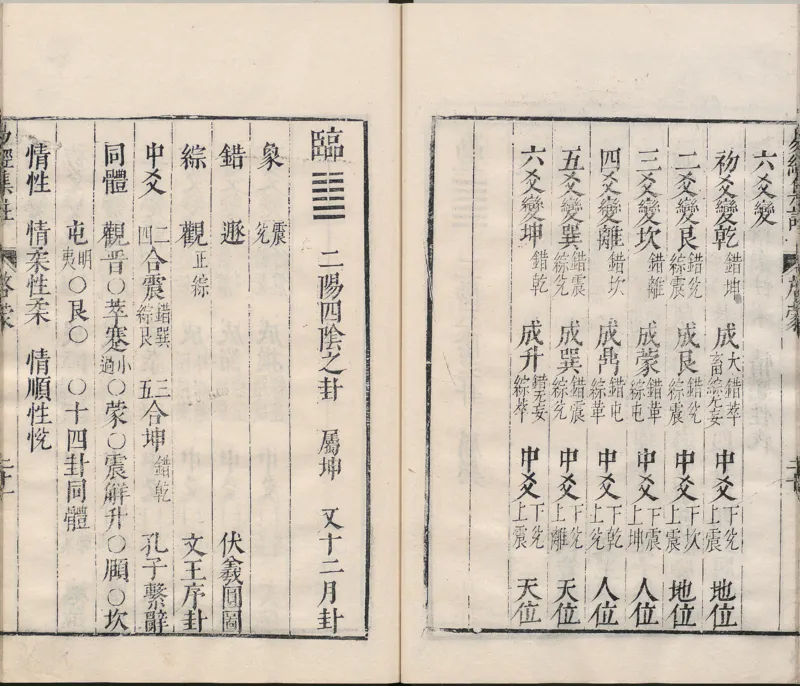 六爻變
初爻變乾 錯坤 成大畜 錯萃 綜无妄 中爻 下兌 上震 地位
二爻變艮 錯兌 綜震 成艮 錯兌 綜震 中爻 下坎 上震 地位
三爻變坎 錯離 成蒙 錯革 綜屯 中爻 下震 上坤 人位
四爻變離 錯坎 成鼎 錯屯 綜革 中爻 下乾 上兌 人位
五爻變巽 錯震 綜兌 成巽 錯震 綜兌 中爻 下兌 上離 天位
六爻變坤 錯乾 成升 錯无妄 綜萃 中爻 下兌 上震 天位
臨 ䷒ 二陽四陰之卦 屬坤 又十二月卦
象 震 兌
錯 遯 伏羲圓圖
綜 觀 正綜 文王序卦
中爻 二四合震 錯巽 綜艮 三五合坤 錯乾 孔子繫辭
同體 觀晉○萃蹇小過○蒙○震解升○頤○坎
屯明夷○艮○ ○十四卦同體
情性 情柔性柔 情順性悅
經集註 啓蒙